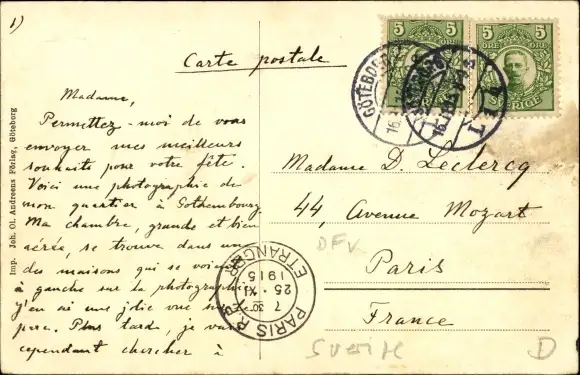 1)
Carte postale
Madame,
Permettez-moi de vous
envoyer mes meilleurs
souhaits pour votre fête.
Voici une photographie de
mon quartier à Gothembourg.
Ma chambre, grande et bien
aérée, se trouve dans une
des maisons qui se voient
à gauche sur la photographie
j'en ai une jolie vue sur
parc. Plus tard, je vais
cependant chercher à
Imp. Joh. Ol. Andreens Förlag, Göteborg
5 5
ÖRE ÖRE
5 5
ÖRE ÖRE
SVERIGE
GÖTEBORG
Madame D. Leclercq
44, Avenue Mozart
Paris
France
DFV
PARIS R.P.
ETRANGER
7 30
25 · XI
1915
Sverige
D